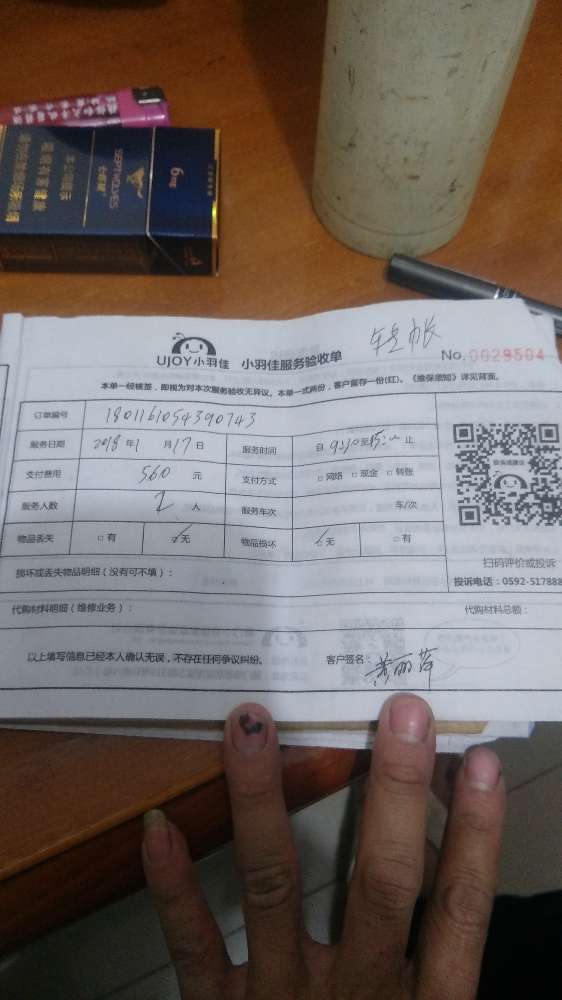 6mg
SEPTWOLVES
七匹狼
本公司提示
吸烟有害健康
UJOY小羽佳 小羽佳服务验收单 No. 0029504
本单一经核签，即视为对本次服务验收无异议。本单一式两份，客户留存一份(红)。《维保须知》详见背面。
订单编号 1801161054390743
服务日期 2018 年 1 月 17 日 服务时间 自 至 止
支付费用 560 元 支付方式 □网络 □现金 □转账
服务人数 2 人 服务车次 车/次
物品丢失 □有 □无 物品损坏 □无 □有
损坏或丢失物品明细（没有可不填）：
扫码评价或投诉
投诉电话：0592-517888
代购材料明细（维修业务）： 代购材料总额：
以上填写信息已经本人确认无误，不存在任何争议纠纷。 客户签名： 黄丽萍